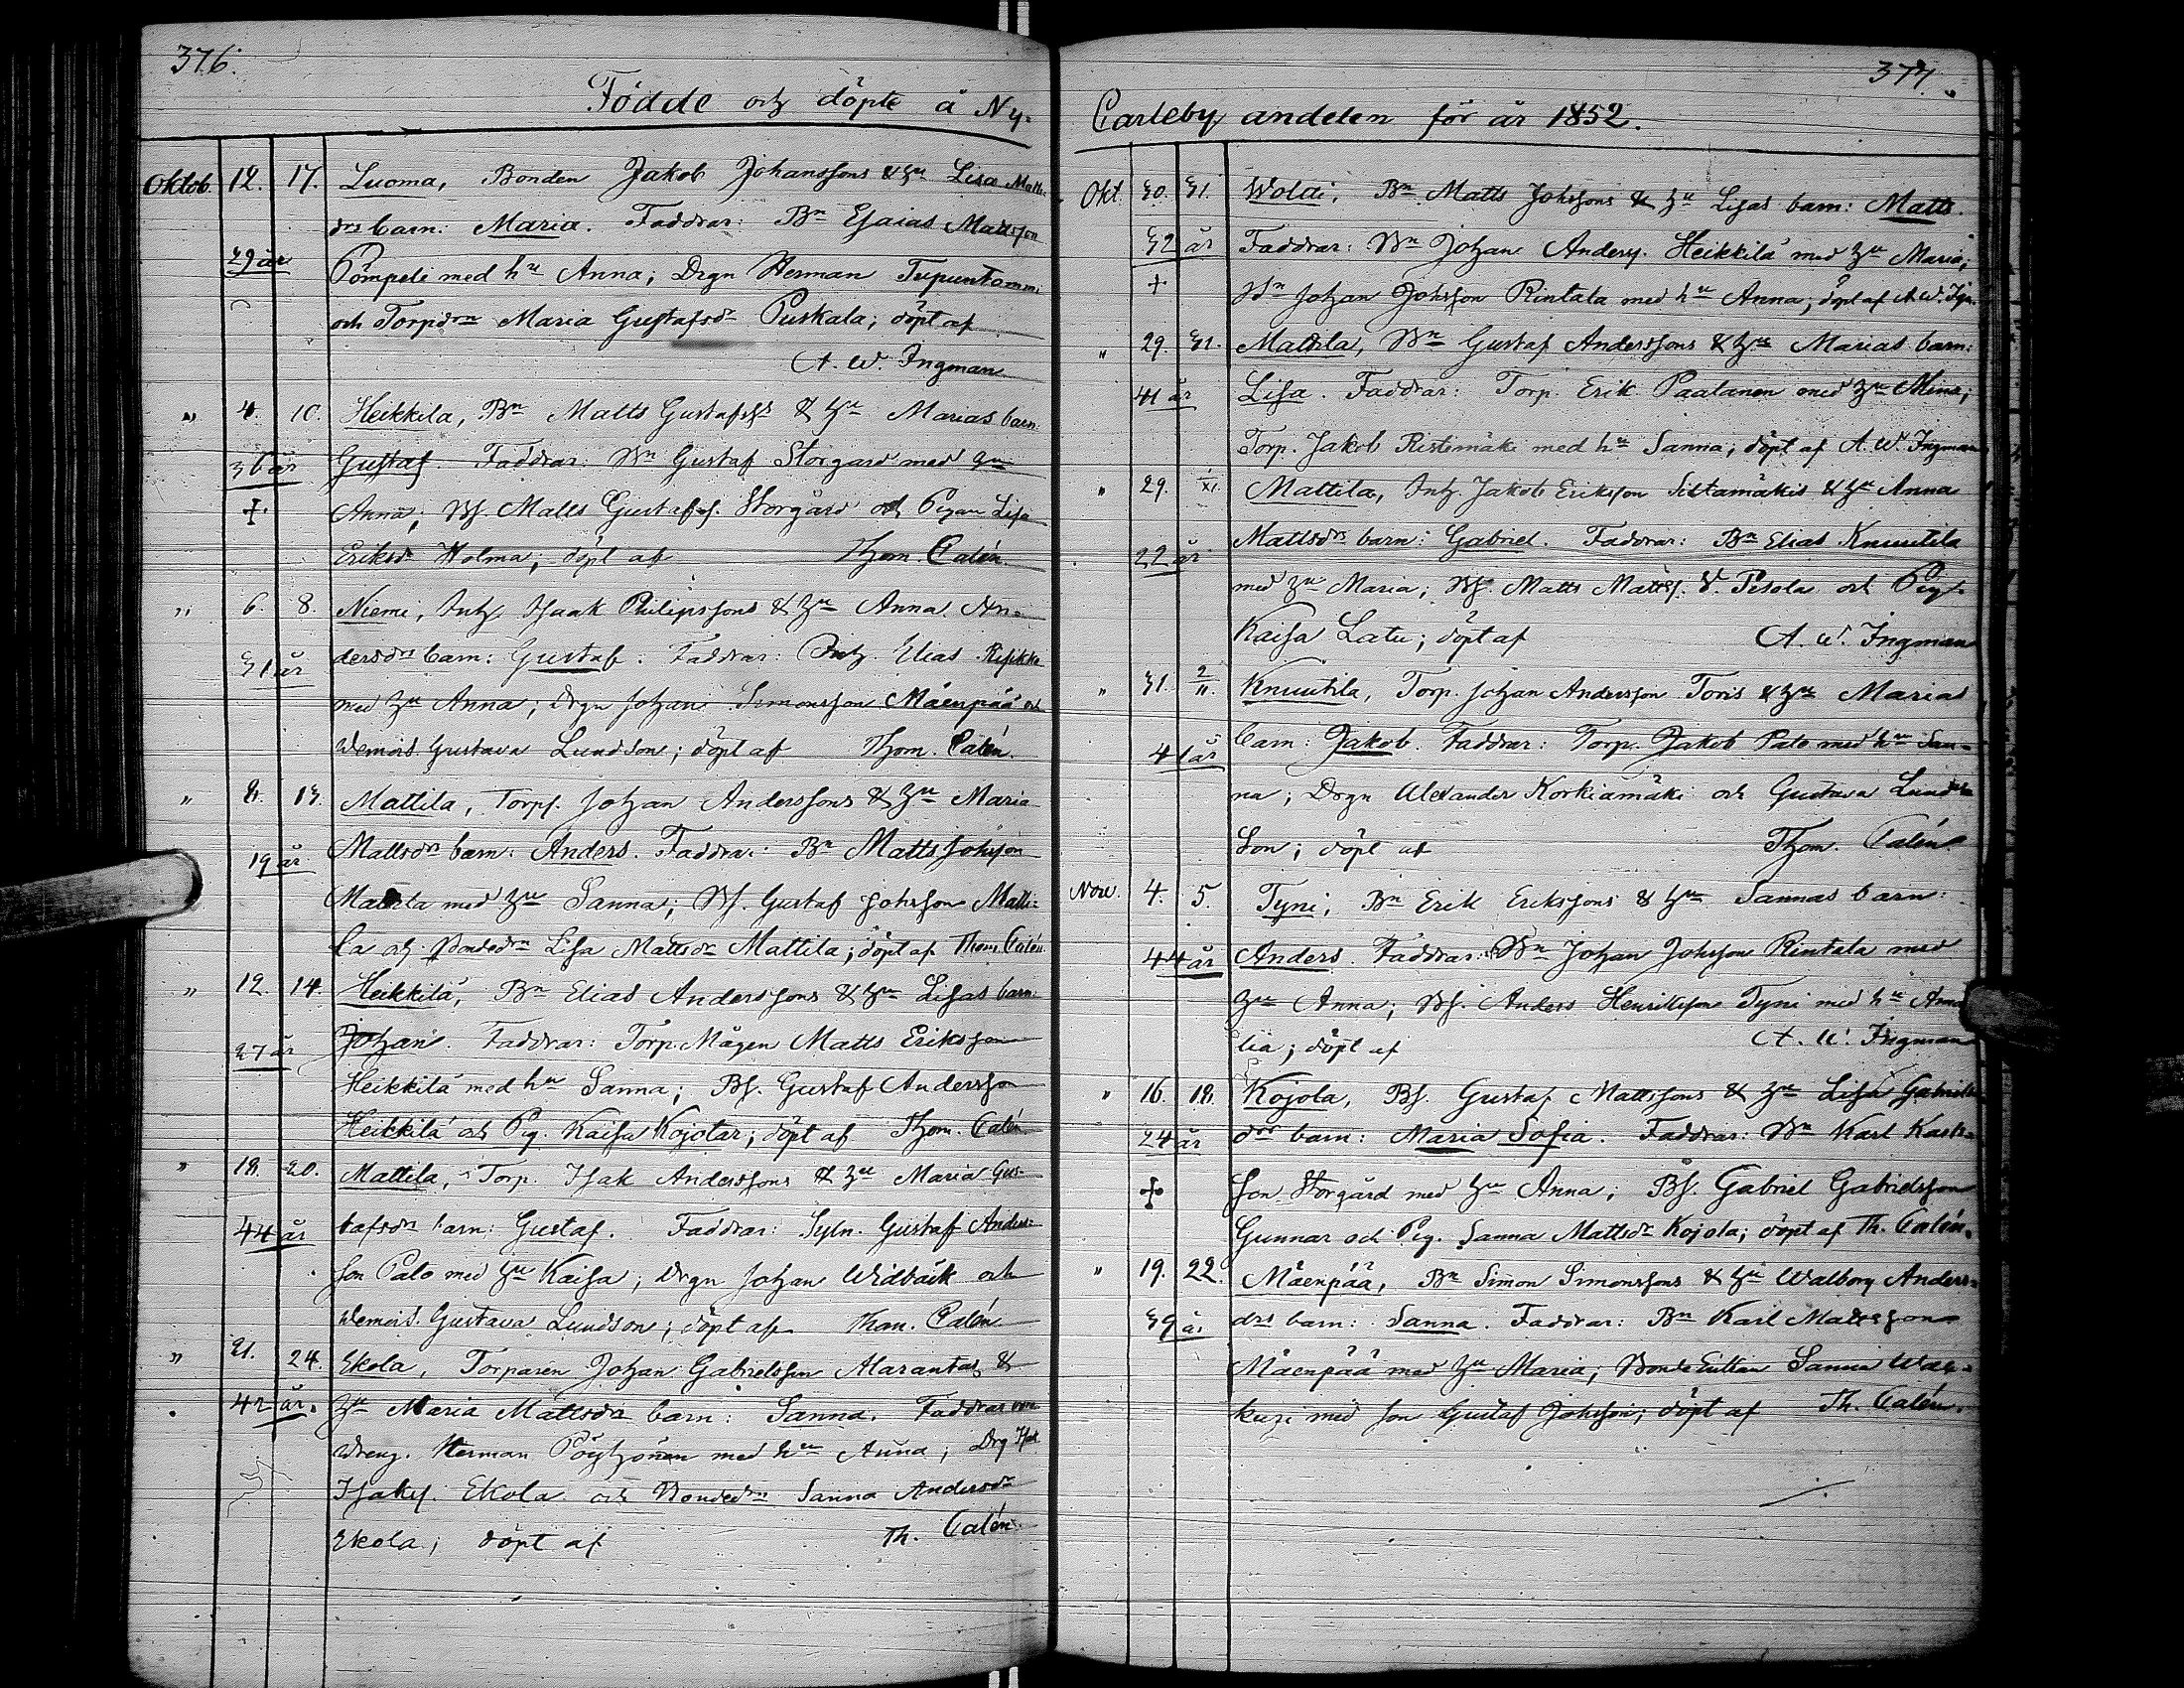 376.
Födde och döpte å Ny-
Oktob. 12. 17. Luoma, Bonden Jakob Johanssons & hu Lisa Matts-
drs barn: Maria. Faddrar: Bn Esaias Mattsson
29 år Pömpeli med hu Anna; Drgn Herman
och Torpdrn Maria Gustafsdr Puskala; döpt af
A. W. Ingman
" 4. 10. Heikkilä, Bn Matts Gustafss & hu Marias barn:
36 år Gustaf. Faddrar: Bn Gustaf Storgård med hu
+ Anna; Bs. Matts Gustafss. Storgård och Pigan Lisa
Eriksdr Holma; döpt af Thom. Calén.
" 6. 8. Niemi, Inh. Isaak Philipssons & hu Anna An-
31 år dersdrs barn: Gustaf. Faddrar: Inh. Elias
med hu Anna; Drgn Johan Simonsson Mäenpää och
Demois. Gustava Lundson; döpt af Thom. Calén.
" 8. 13. Mattila, Torps. Johan Anderssons & hu Maria
19 år Mattsdrs barn: Anders. Faddrar: Bn Matts Johsson
Mattila med hu Sanna; Bs. Gustaf Johsson Matti-
la och Bondedrn Lisa Mattsdr Mattila; döpt af Thom. Calén
" 12. 14. Heikkilä, Bn Elias Anderssons & hu Lisas barn:
27 år Johan. Faddrar: Torp. Mågen Matts Eriksson
Heikkilä med hu Sanna; Bs. Gustaf Andersson
Heikkilä och Pig. Kaisa Kojolar; döpt af Thom. Calén
" 18. 20. Mattila, Torp. Isak Anderssons & hu Maria Gus-
44 år tafsdrs barn: Gustaf. Faddrar: Sytn. Gustaf Anders-
son Palo med hu Kaisa; Drgn Johan Widbäck och
Demois. Gustava Lundson; döpt af Thom. Calén
" 21. 24. Ekola, Torparen Johan Gabrielsson Alarantas &
42 år. hu Maria Mattsdrs barn: Sanna. Faddrar
Dreng. Herman Pöyhönen med hu Anna; Drg
Isaks. Ekola och Bondedrn Sanna Andersdr
Ekola; döpt af Th. Calén
377.
Carleby andelen för år 1852.
Okt. 30. 31. Woldi, Bn Matts Johssons & hu Lisas barn: Matts.
32 år Faddrar: Bn Johan Anders. Heikkilä med hu Maria;
+ Bn Johan Johsson Rintala med hu Anna; döpt af A. W. Ingn.
" 29. 31. Mattila, Bn Gustaf Anderssons & hu Marias barn:
41 år Lisa. Faddrar: Torp. Erik Paalanen med hu Mina;
Torp. Jakob Ristimäki med hu Sanna; döpt af A. W. Ingman
" 29. 1/XI. Mattila, Inh. Jakob Eriksson & hu Anna
22 år Mattsdrs barn: Gabriel. Faddrar: Bn Elias Knuutila
med hu Maria; Bs. Matts Mattss. V. Pesola och Pig.
Kaisa Latu; döpt af A. W. Ingman
" 31. 2/11. Knuutila, Torp. Johan Andersson Toris & hu Marias
41 år barn: Jakob. Faddrar: Torp. Jakob Palo med hu San-
na; Drgn Alexander Korkiamäki och Gustava Lund-
son; döpt af Thom. Calén
Nov. 4. 5. Tyni, Bn Erik Erikssons & hu Sannas barn:
44 år Anders. Faddrar: Bn Johan Johsson Rintala med
hu Anna; Bs. Anders Henriksson Tyni med hu Ama-
lia; döpt af A. W. Ingman
" 16. 18. Kojola, Bs. Gustaf Mattssons & hu Lisa Gabriels-
24 år drs barn: Maria Sofia. Faddrar: Bn Karl Karls-
+ son Storgård med hu Anna; Bs. Gabriel Gabrielsson
Gunnar och Pig. Sanna Mattsdr Kojola; döpt af Th. Calén.
" 19. 22. Mäenpää, Bn Simon Simonssons & hu Walborg Anders-
39 år drs barn: Sanna. Faddrar: Bn Karl Mattsson
Mäenpää med hu Maria; Bonde Enkan Sanna
med son Gustaf Johsson; döpt af Th. Calén.